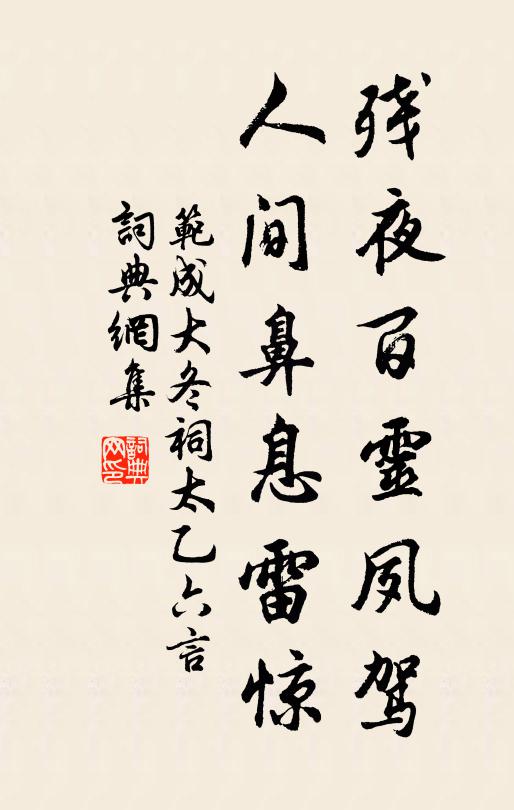 残夜百靈夙驾
人间鼻息雷惊
範成大冬祠太乙六言
詞典網集
詞典網印